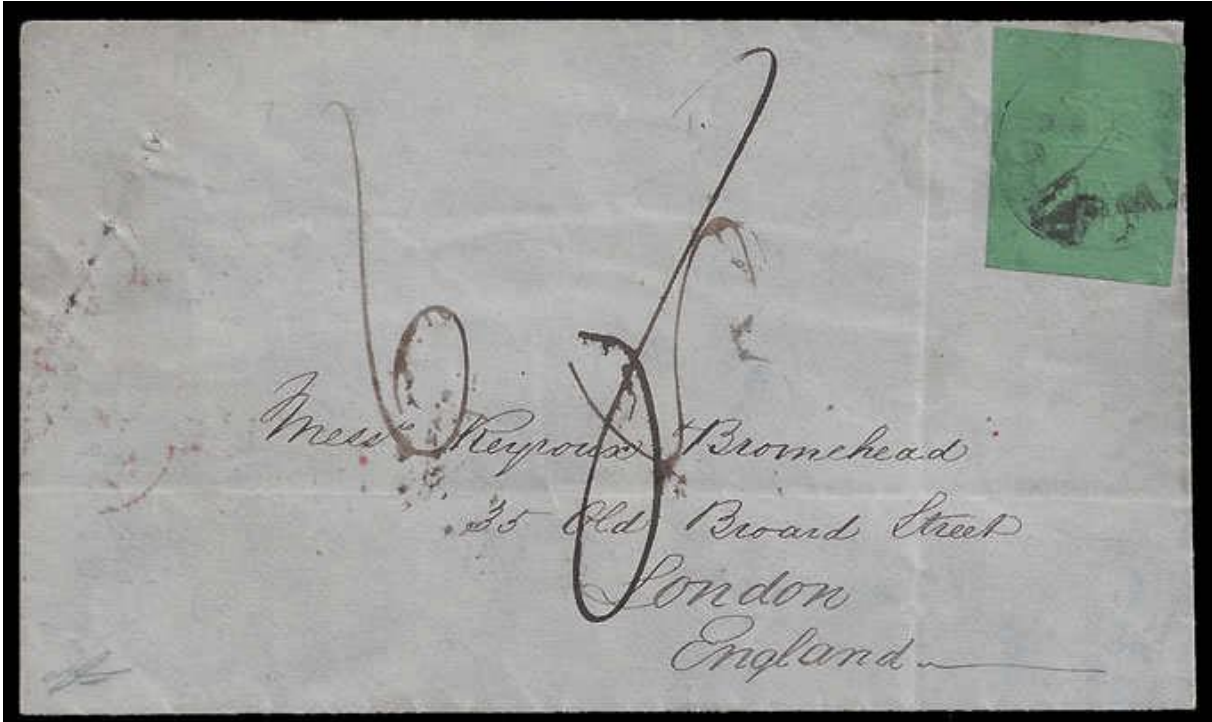 Messrs Reyroux Bromehead
35 Old Broard Street
London
England